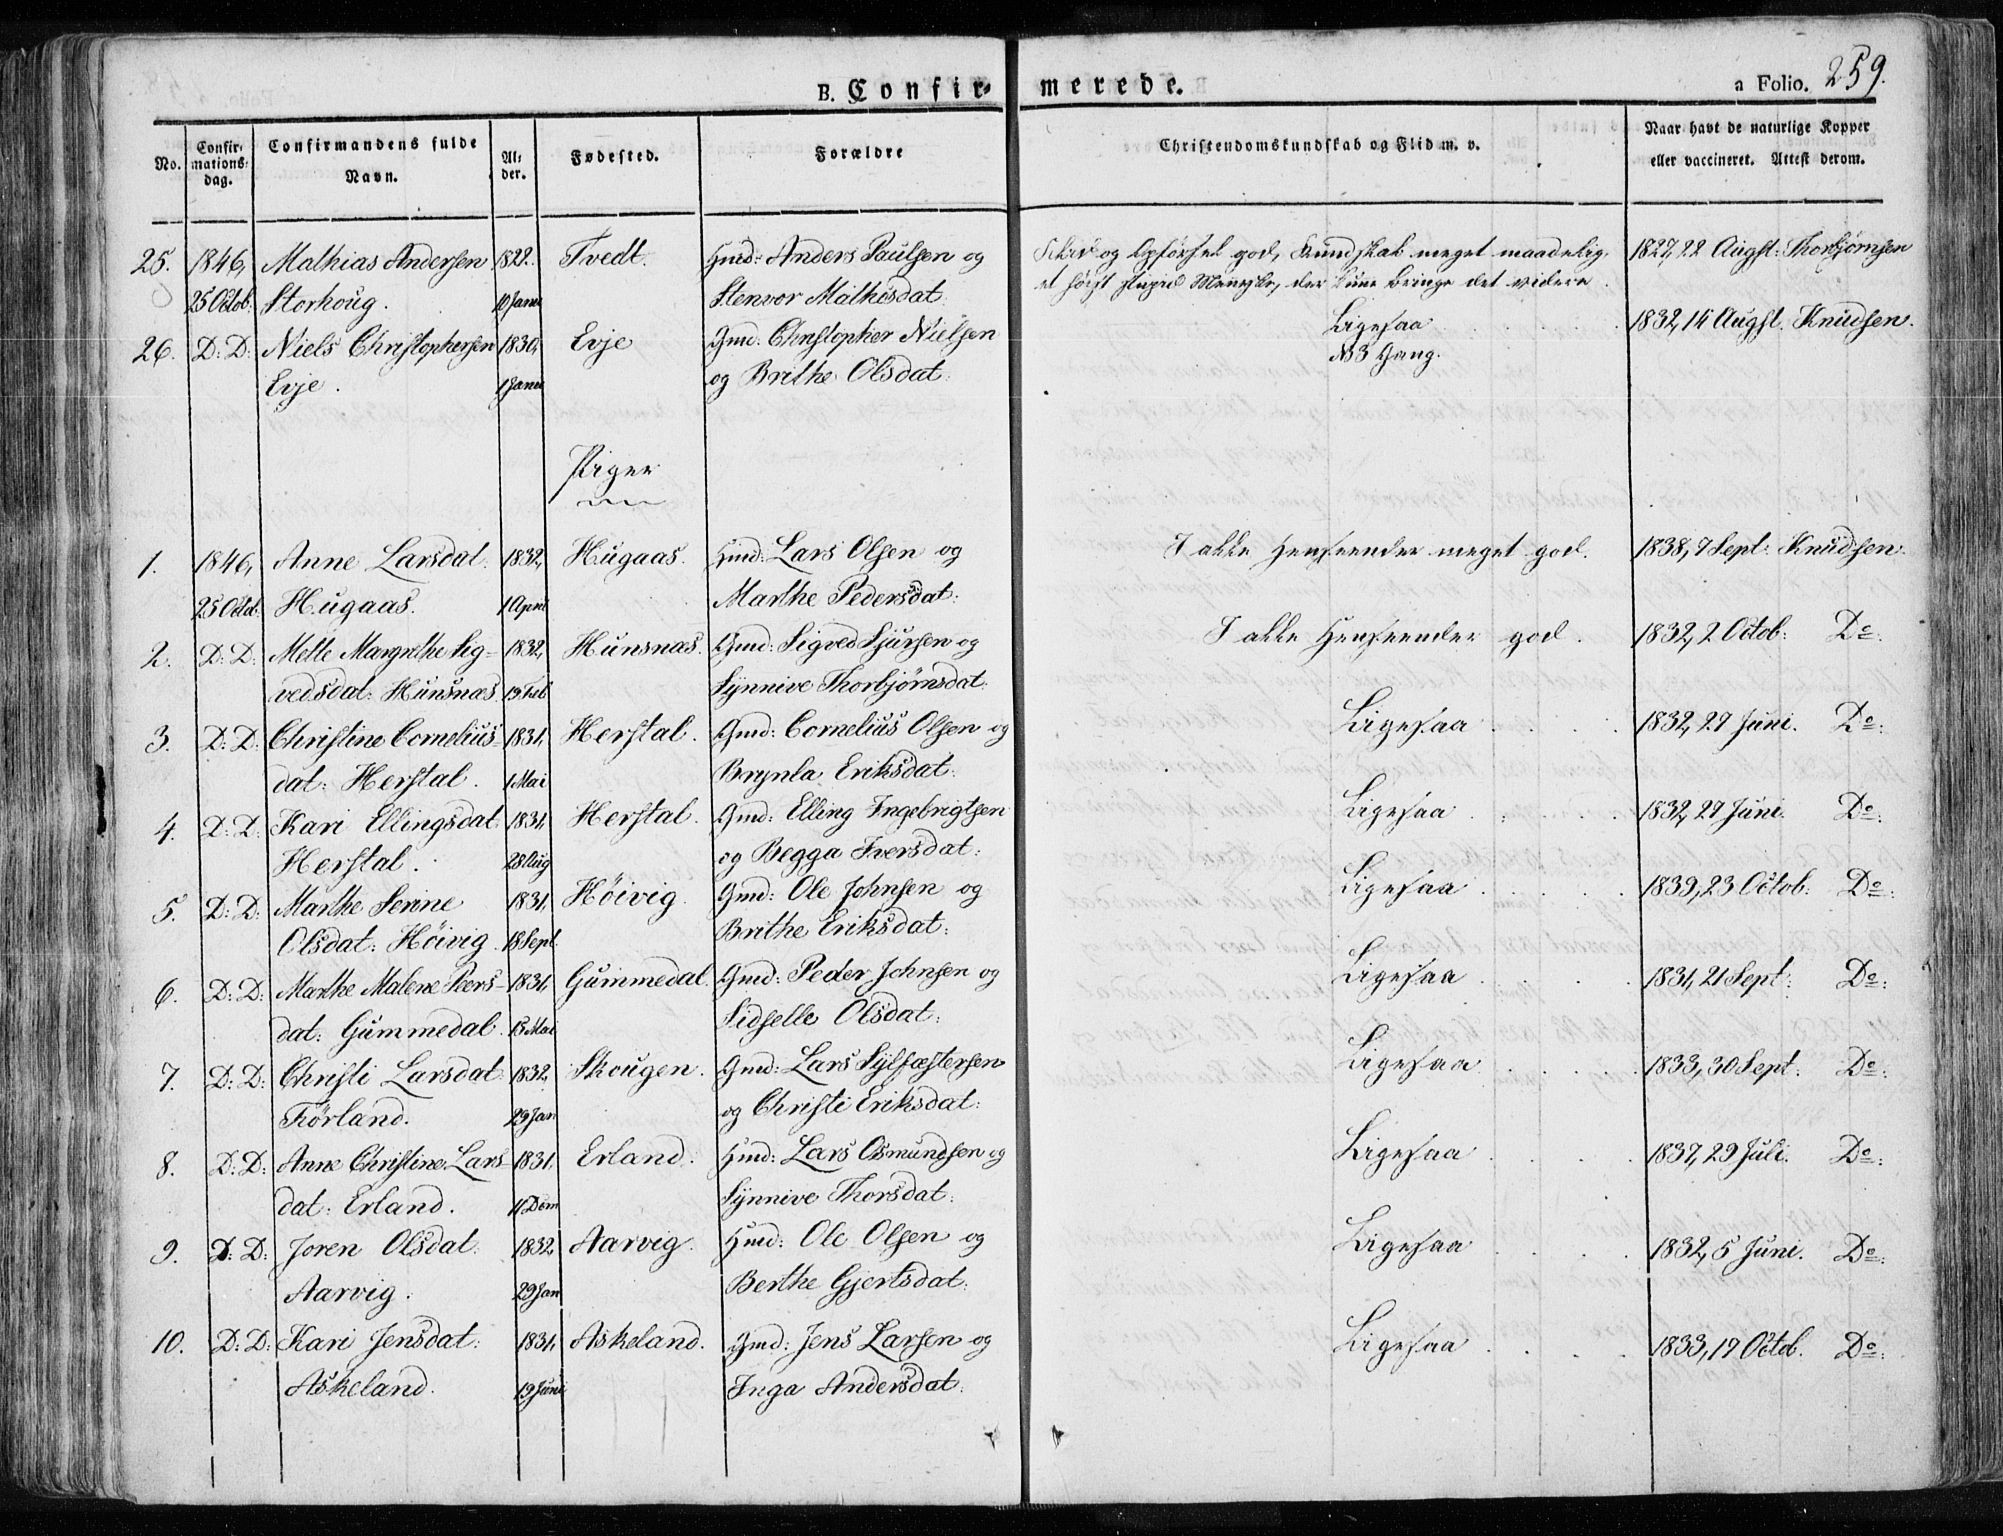 B. Confirmerede.
a Folio. 259.
No. Confirmationsdag. Confirmandens fulde Navn. Alder. Fødested. Forældre Christendomskundskab og Flid m. v. Naar havt de naturlige Kopper eller vaccineret. Attest derom.
25. 1846, Mathias Andersen 1822. Tvedt. Gmd: Anders Paulsen og Flid og Opførsel god, Kundskab meget maadelig, 1827, 22 Augst: Thorbjörnsen
25 Octob: Storhoug. 10 Janu Stenvor Mathisdat: et høist stupid Menneske, der kunne bringe det videre.
26. D: D: Niels Christophersen 1830, Evje Gmd: Christopher Nielsen Ligesaa 1832, 14 Augst. Knudsen.
Evje. 1 Janu og Brithe Olsdat: NB 3 Gang.
Piger
1. 1846, Anne Larsdat: 1832, Hugaas. Hmd: Lars Olsen og I alle Henseender meget god. 1838, 7 Sept: Knudsen.
25 Octob. Hugaas. 1 April Marthe Pedersdat:
2. D: D: Mette Margrethe Sig- 1832, Hunsnæs. Gmd: Sigved Sjursen og I alle Henseender god. 1832, 2 Octob: Do:
vedsdat: Hunsnæs 19 Feb Synnive Thorbjørnsdat:
3. D: D: Christine Cornelius- 1831, Herstal. Gmd: Cornelius Olsen og Ligesaa 1832, 27 Juni. Do:
dat: Herstal. 1 Mai Brynla Eriksdat:
4. D: D: Kari Ellingsdat 1831, Herstal. Gmd: Elling Ingebrigtsen Ligesaa 1832, 27 Juni. Do:
Herstal. 28 Aug og Begga Iversdat:
5. D: D: Marthe Serine 1831, Høivig. Gmd: Ole Johnsen og Ligesaa 1839, 23 Octob: Do:
Olsdat: Høivig. 18 Sept. Brithe Eriksdat:
6. D: D: Marthe Malene Peers- 1831, Gummedal. Gmd: Peder Johnsen og Ligesaa 1831, 21 Sept: Do:
dat: Gummedal. 15 Mai Sidselle Olsdat:
7. D: D: Christi Larsdat: 1832, Skougen. Gmd: Lars Sylfæstersen Ligesaa 1833, 30 Sept: Do:
Førland. 29 Jan og Christi Eriksdat:
8. D: D: Anne Christine Lars- 1831, Erland. Hmd: Lars Osmundsen og Ligesaa 1837, 29 Juli. Do:
dat: Erland. 11 Dcm Synnive Thorsdat:
9. D: D: Joren Olsdat: 1832, Aarvig. Hmd: Ole Olsen og Ligesaa 1832, 5 Juni. Do:
Aarvig. 29 Jan Berthe Gjertsdat:
10. D: D: Kari Jensdat: 1831, Askeland. Gmd: Jens Larsen og Ligesaa 1833, 19 Octob. Do:
Askeland. 19 Juni Inga Andersdat: